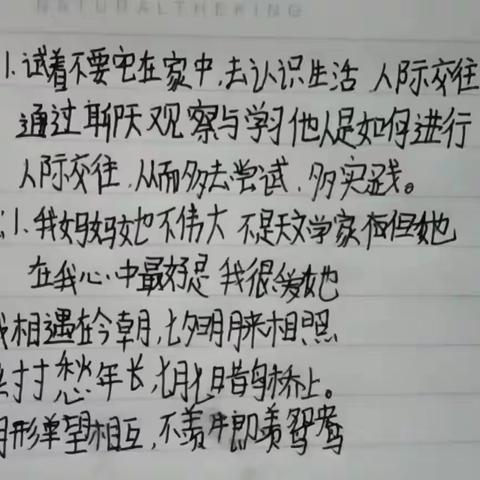 NATURALTHEKING
1.试着不要宅在家中,去认识生活 人际交往
通过聊天观察与学习他人是如何进行
人际交往,从而多去尝试、多实践。
1.我妈妈她也不伟大 不是天文学家 但她
在我心中最好是 我很爱她
相遇在今朝,七夕明月来相照
寸寸愁年长,七月七日鹊桥上。
形单望相互,不羡牛郎羡鸳鸯